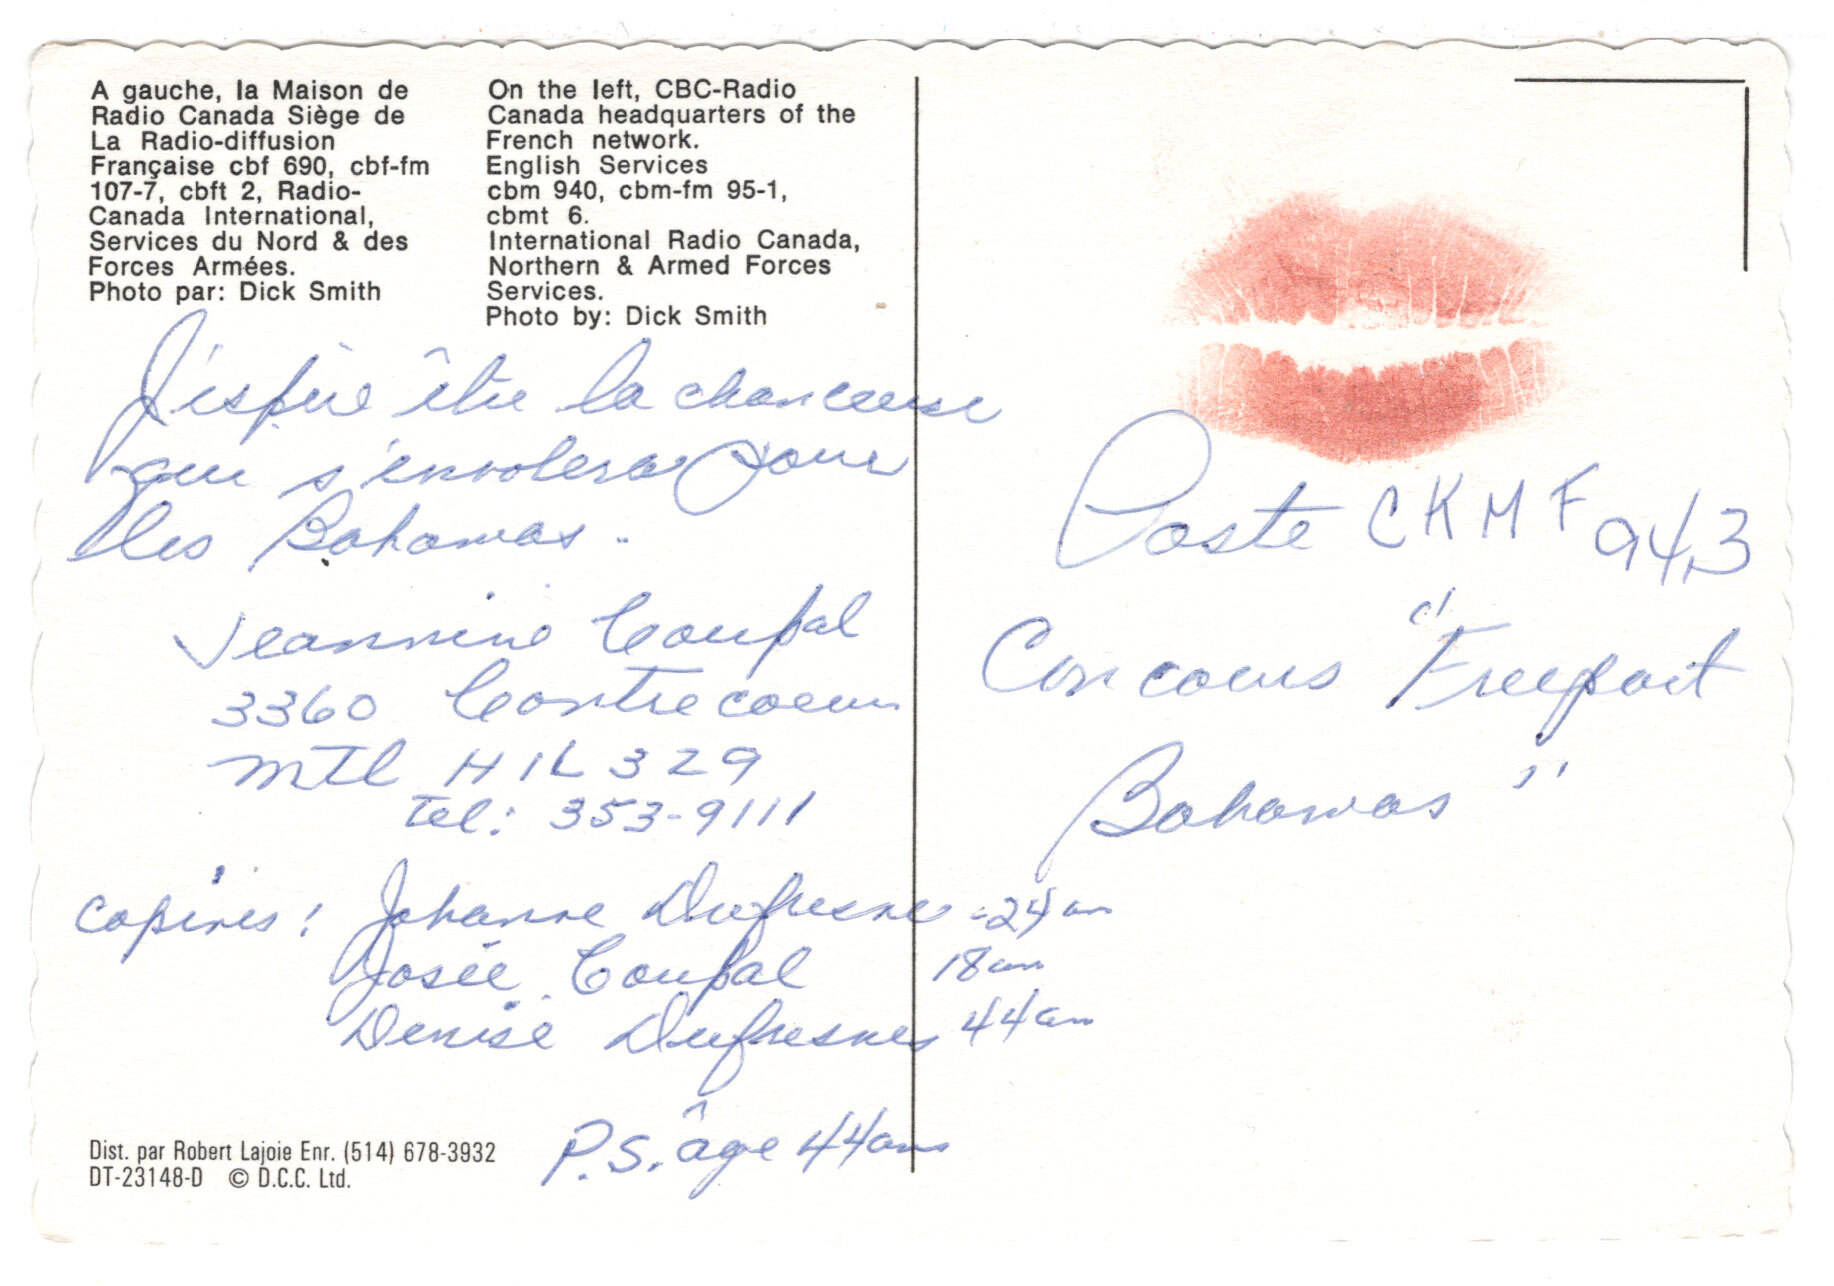 A gauche, la Maison de
Radio Canada Siège de
La Radio-diffusion
Française cbf 690, cbf-fm
107-7, cbft 2, Radio-
Canada International,
Services du Nord & des
Forces Armées.
Photo par: Dick Smith
On the left, CBC-Radio
Canada headquarters of the
French network.
English Services
cbm 940, cbm-fm 95-1,
cbmt 6.
International Radio Canada,
Northern & Armed Forces
Services.
Photo by: Dick Smith
J'espère être la chanceuse
qui s'envolera pour
les Bahamas.
Jeannine Coupal
3360 Contrecoeur
Mtl H1L 3Z9
Tel: 353-9111
copines: Johanne Dufresne - 24 an
Josée Coupal 18 an
Denise Dufresnes 44 an
P.S. âge 44 ans
Dist. par Robert Lajoie Enr. (514) 678-3932
DT-23148-D © D.C.C. Ltd.
Poste CKMF 94,3
Concours "Freeport
Bahamas"